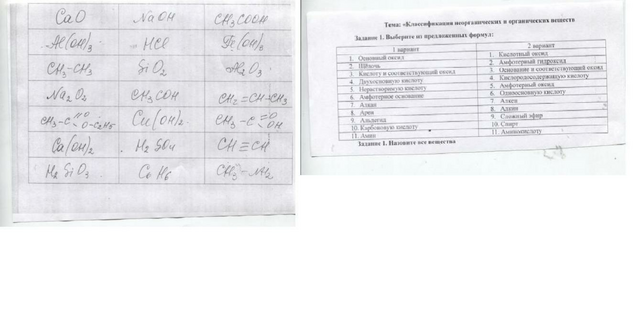 CaO NaOH CH3COOH
Al(OH)3 HCl
CH3-CH3 SiO2 Al2O3
CH3COH CH2=CH-CH3
CH3-C O O-C2H5 Cu(OH)2 CH3-C O OH
Ca(OH)2 H2SO4 CH≡CH
H2SiO3 C6H6 CH3-NH2
Тема: «Классификация неорганических и органических веществ
Задание 1. Выберите из предложенных формул:
1 вариант 2 вариант
1. Основный оксид 1. Кислотный оксид
2. Щёлочь 2. Амфотерный гидроксид
3. Кислоту и соответствующий оксид 3. Основание и соответствующий оксид
4. Двухосновную кислоту 4. Кислородосодержащую кислоту
5. Нерастворимую кислоту 5. Амфотерный оксид
6. Амфотерное основание 6. Одноосновную кислоту
7. Алкан 7. Алкен
8. Арен 8. Алкин
9. Альдегид 9. Сложный эфир
10. Карбоновую кислоту 10. Спирт
11. Амин 11. Аминокислоту
Задание 1. Назовите все вещества